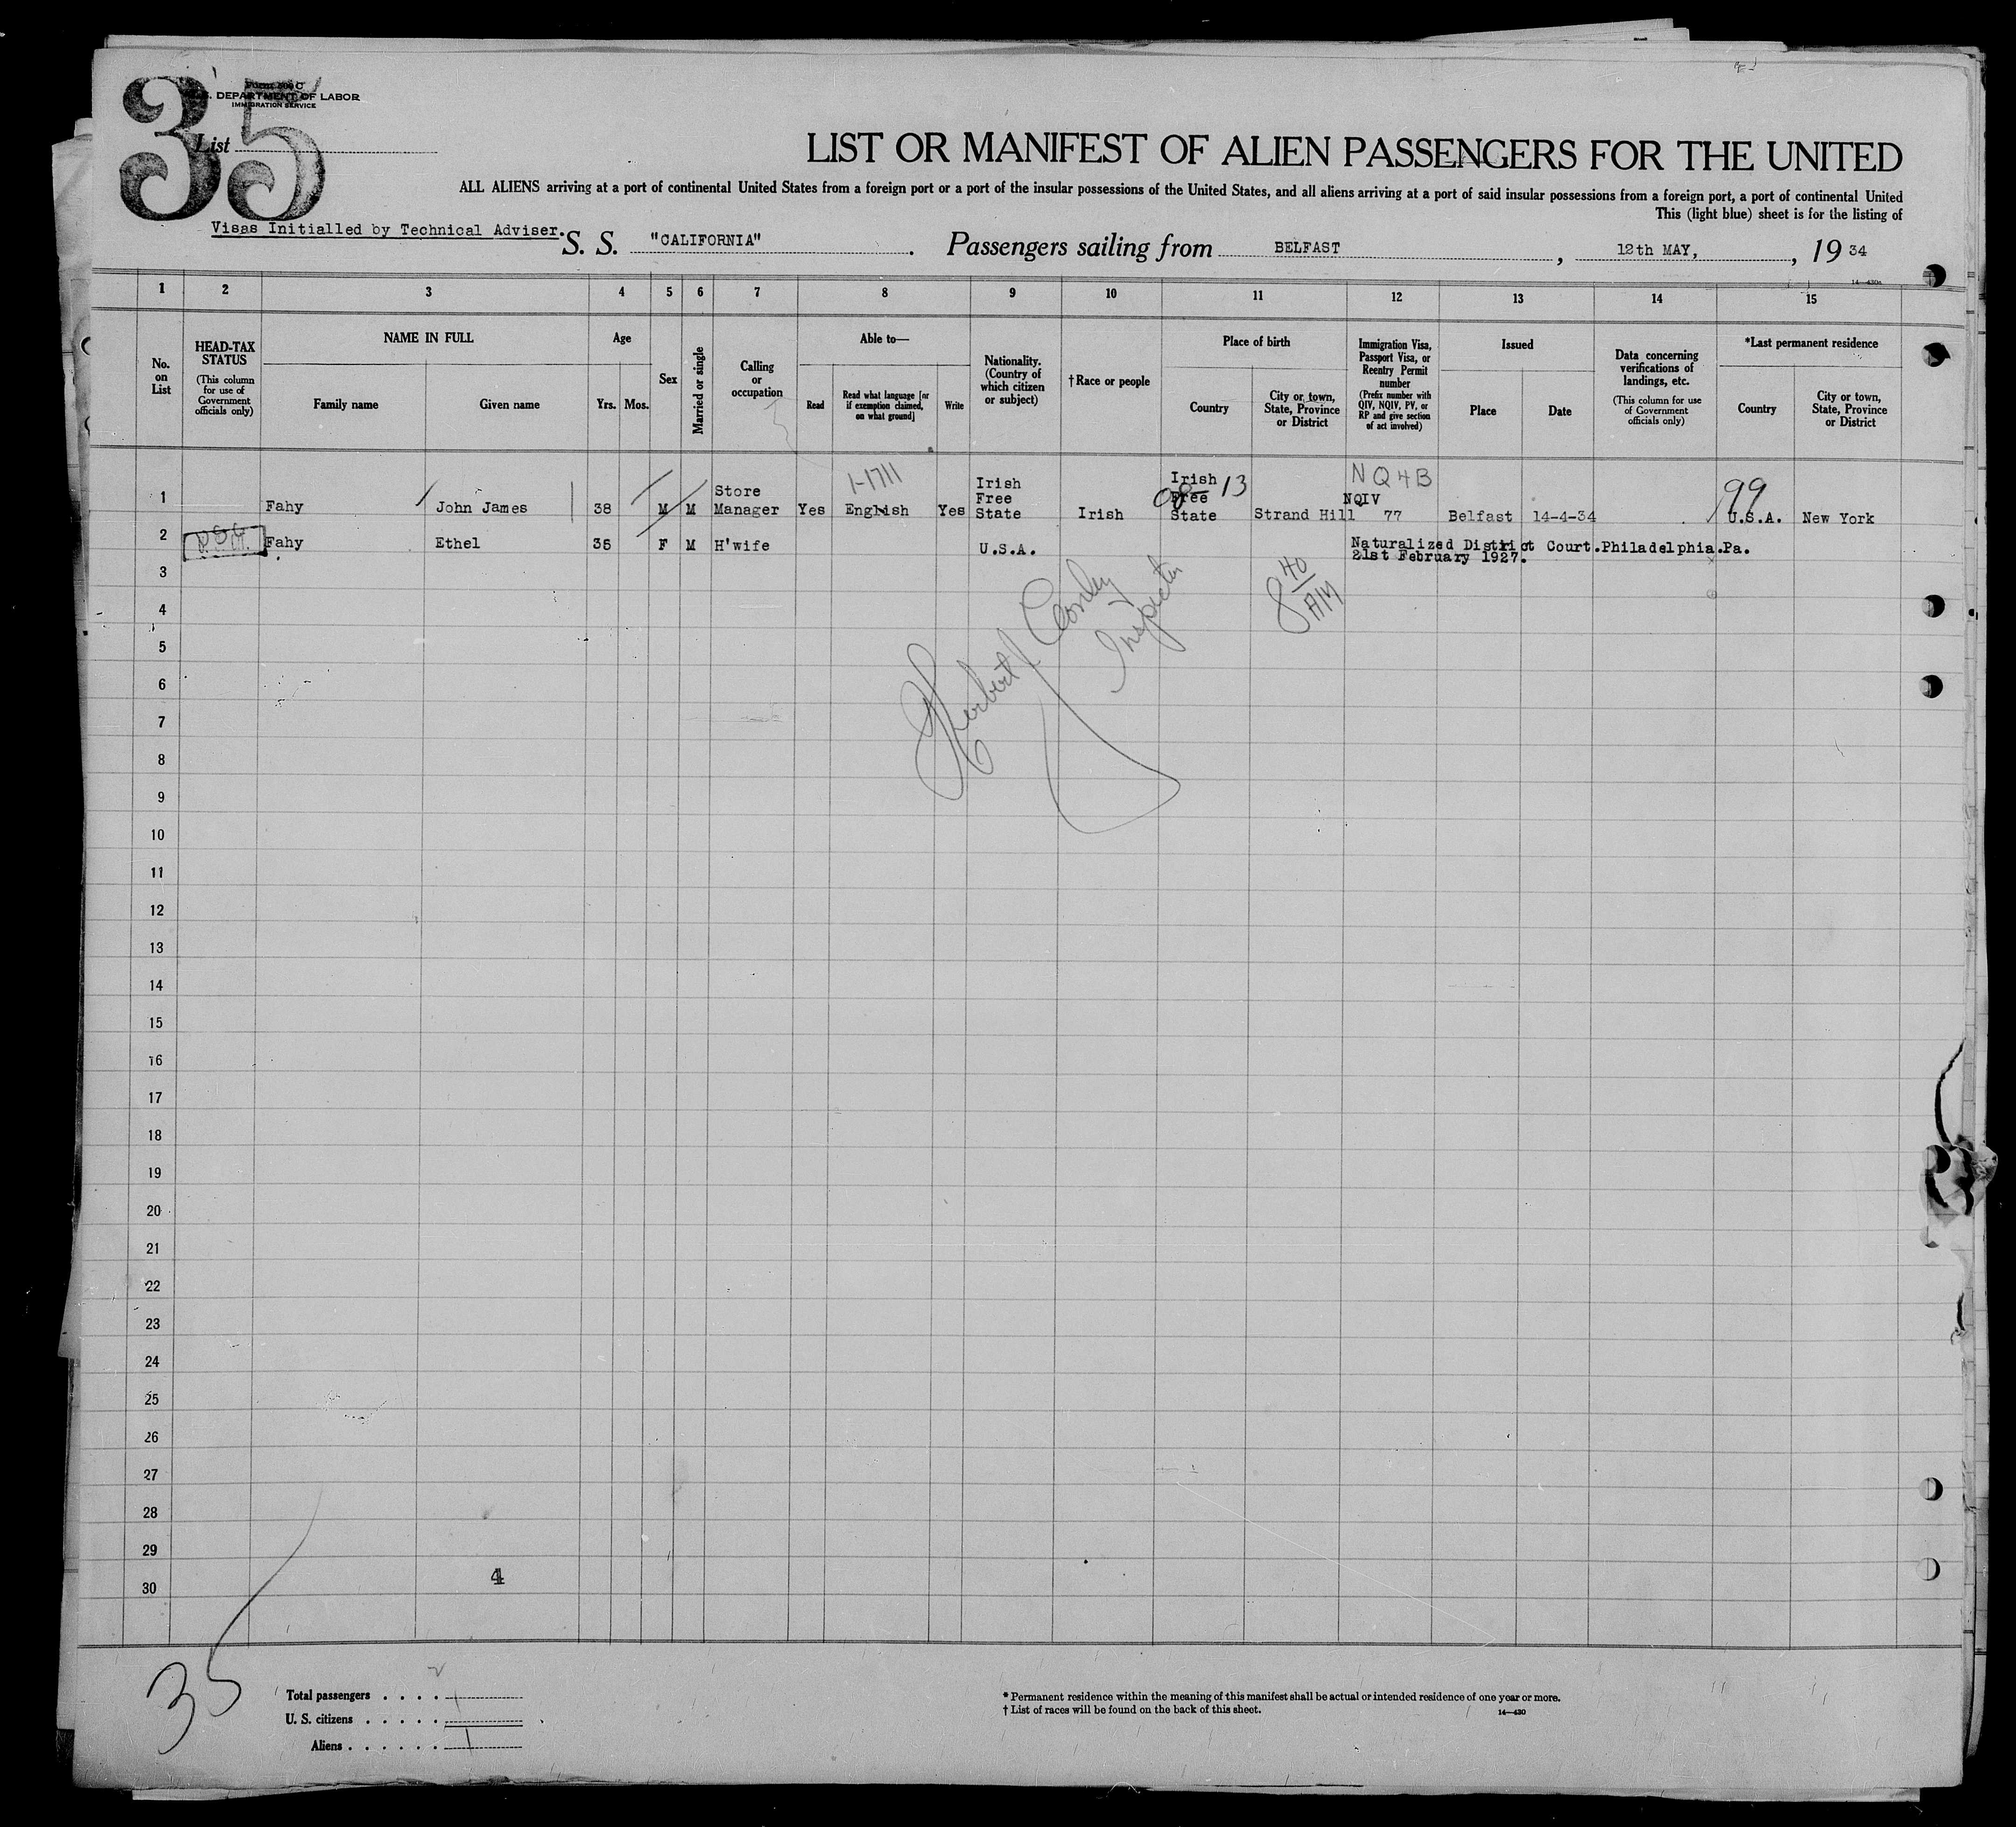 35
Form 500 C
U.S. DEPARTMENT OF LABOR
IMMIGRATION SERVICE
List
LIST OR MANIFEST OF ALIEN PASSENGERS FOR THE UNITED
ALL ALIENS arriving at a port of continental United States from a foreign port or a port of the insular possessions of the United States, and all aliens arriving at a port of said insular possessions from a foreign port, a port of continental United
This (light blue) sheet is for the listing of
Visas Initialled by Technical Adviser.
S. S. "CALIFORNIA". Passengers sailing from BELFAST, 12th MAY, 1934
14—430a
1 2 3 4 5 6 7 8 9 10 11 12 13 14 15
No. on List
HEAD-TAX STATUS
(This column for use of Government officials only)
NAME IN FULL
Family name
Given name
Age
Yrs. Mos.
Sex
Married or single
Calling or occupation
Able to—
Read
Read what language [or if exemption claimed, on what ground]
Write
Nationality. (Country of which citizen or subject)
†Race or people
Place of birth
Country
City or town, State, Province or District
Immigration Visa, Passport Visa, or Reentry Permit number
(Prefix number with QIV, NQIV, PV, or RP and give section of act involved)
Issued
Place
Date
Data concerning verifications of landings, etc.
(This column for use of Government officials only)
*Last permanent residence
Country
City or town, State, Province or District
1-1711
13
NQ4B
99
1 Fahy John James 38 M M Store Manager Yes English Yes Irish Free State Irish Irish Free State Strand Hill NQIV 77 Belfast 14-4-34 U.S.A. New York
2 Fahy Ethel 35 F M H'wife U.S.A. Naturalized District Court.Philadelphia.Pa.
21st February 1927.
8 40 AM
Inspector
3
4
5
6
7
8
9
10
11
12
13
14
15
16
17
18
19
20
21
22
23
24
25
26
27
28
29
30
4
35
Total passengers . . . . 2
U. S. citizens . . . . . 1
Aliens . . . . . . 1
* Permanent residence within the meaning of this manifest shall be actual or intended residence of one year or more.
† List of races will be found on the back of this sheet.
14—430